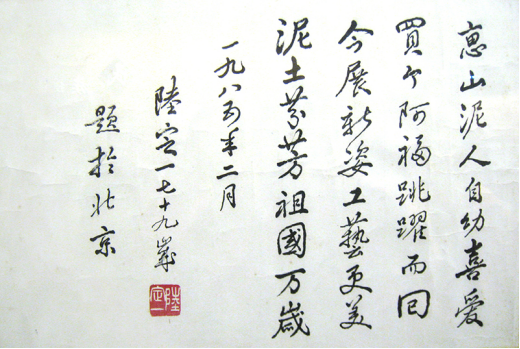 惠山泥人自幼喜爱
買个阿福跳躍而回
今展新姿工藝更美
泥土芬芳祖國万歲
一九八五年二月
陸定一七十九歲
題於北京
陸定一